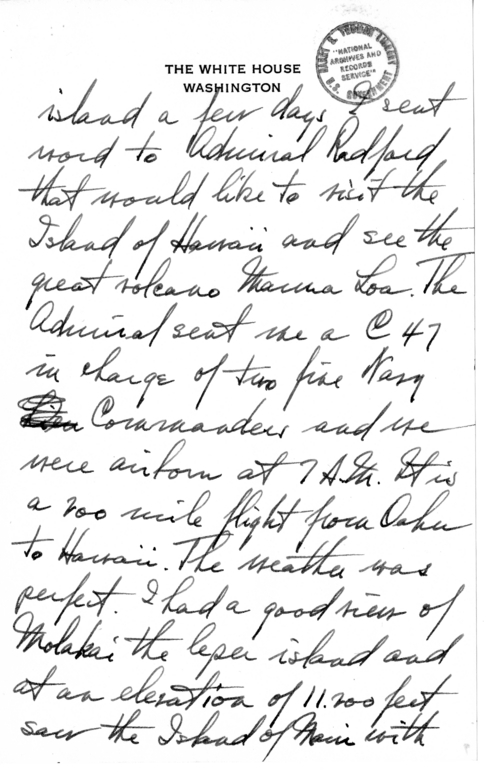 THE WHITE HOUSE
WASHINGTON
HARRY S. TRUMAN LIBRARY
"NATIONAL
ARCHIVES AND
RECORDS
SERVICE"
U.S. GOVERNMENT
island a few days I sent
word to Admiral Radford
that would like to visit the
Island of Hawaii and see the
great volcano Mauna Loa. The
Admiral sent me a C 47
in charge of two fine Navy
Commanders and we
were airborn at 7 A.M. It is
a 200 mile flight from Oahu
to Hawaii. The weather was
perfect. I had a good view of
Molakai the leper island and
at an elevation of 11.200 feet
saw the Island of Maui with